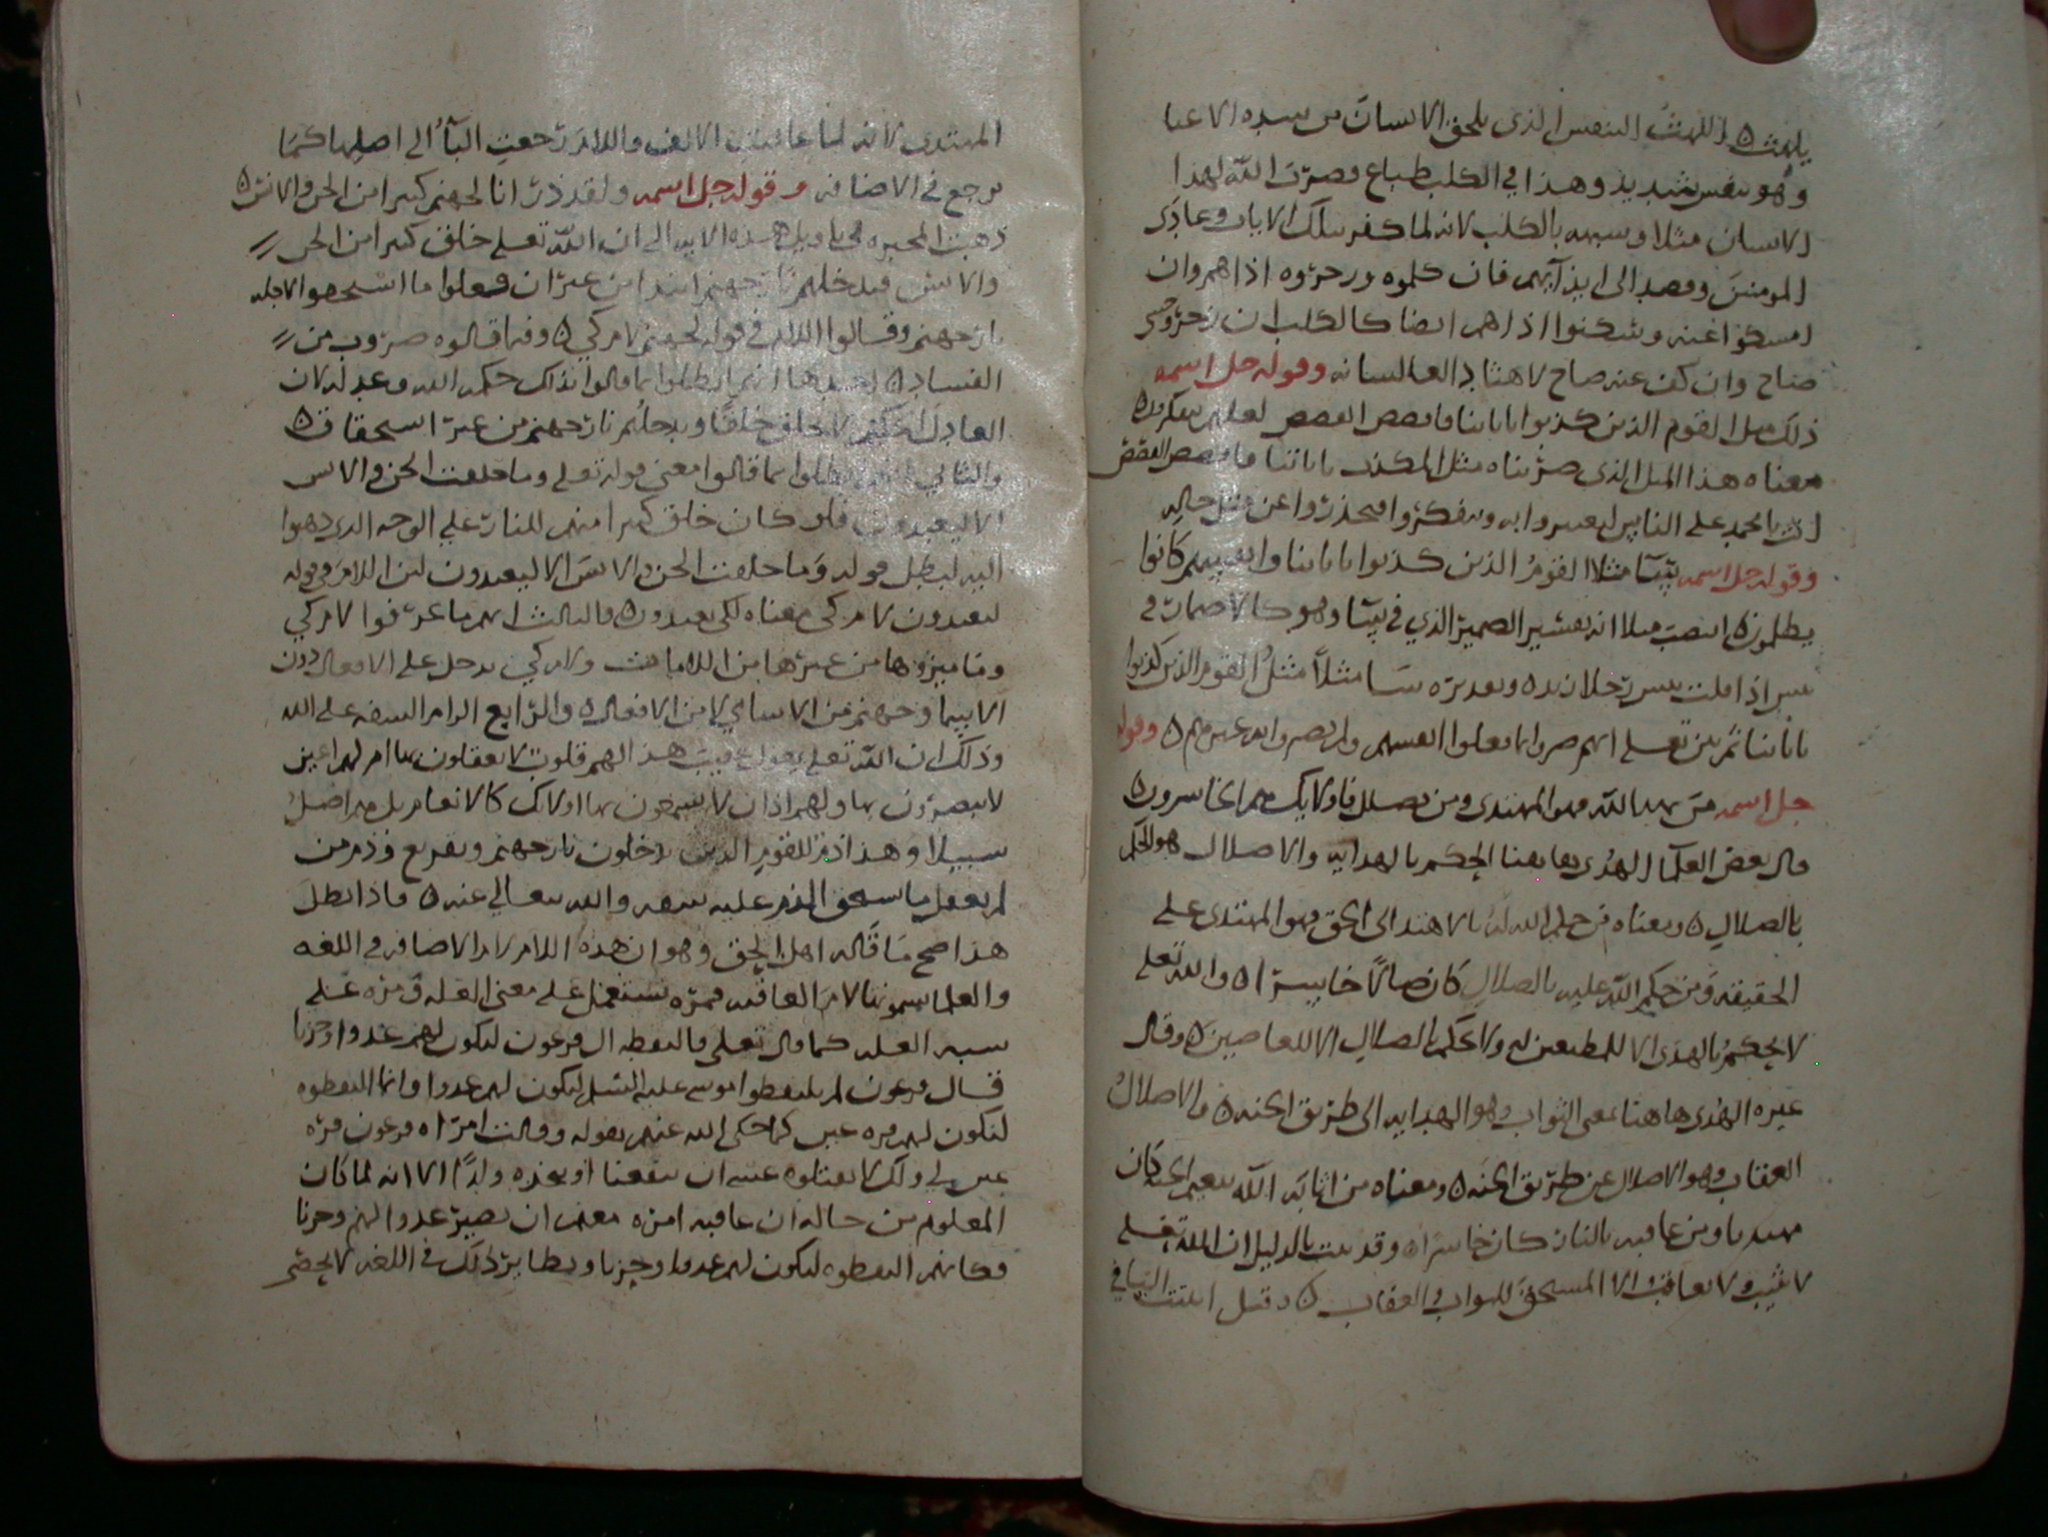 يلهث ه اللهث التنفس الذي يلحق الانسان من شده الاعيا
وهو تنفس شديد وهذا في الكلب طباع فضرب الله لهذا
الانسان مثلا وشبهه بالكلب لانه لما كفر بتلك الايات وعادى
المومنين وقصد الى ايذآيهم فان كلموه وزجروه اذاهم وان
امسكوا عنه وسكتوا اذاهم ايضا كالكلب ان زجرته
صاح وان كف عنه صاح لاهثا دالعا لسانه وقوله جل اسمه
ذلك مثل القوم الذين كذبوا باياتنا فاقصص القصص لعلهم يتفكرون ه
معناه هذا المثل الذي ضربناه مثل المكذب باياتنا فاقصص القصص
انت يا محمد على الناس ليعتبروا به ويتفكروا فيحذروا عن مثل حاله
وقوله جل اسمه سآ مثلا القوم الذين كذبوا باياتنا وانفسهم كانوا
يظلمون ه انتصب مثلا انه تفسير الضمير الذي في سآ وهو كالاضمار في
بيس اذا قلت بيس رجلا زيد ه وتقديره سا مثلاً مثل القوم الذين كذبوا
باياتنا ثم بين تعلى انهم ضروا بما فعلوا انفسهم ولم يضروا به غيرهم ه وقوله
جل اسمه من يهد الله فهو المهتدى ومن يضلل فاولايك هم الخاسرون ه
قال بعض العلما الهدى هاهنا الحكم بالهدايه والاضلال هو الحكم
بالضلال ه ومعناه من حكم الله له بالاهتدا الى الحق فهو المهتدى على
الحقيقه ومن حكم الله عليه بالضلال كان ضالا خاسرا ه والله تعلى
لا يحكم بالهدى الا للمطيعين له ولا يحكم بالضلال الا للعاصين ه وقال
غيره الهدى هاهنا بمعنى الثواب وهو الهدايه الى طريق الجنه ه والاضلال
العقاب وهو الاضلال عن طريق الجنه ه ومعناه من اثابه الله بنعيم الجنه كان
مهتديا ومن عاقبه بالنار كان خاسرا ه وقد ثبت بالدليل ان الله تعلى
لا يثيب ولا يعاقب الا المستحق للثواب والعقاب ه وقيل اثبتت اليا في
المهتدى لانه لما عاقبت الالف واللام رجعت اليآ الى اصلها كما
ترجع في الاضافه وقوله جل اسمه ولقد ذرانا لجهنم كثيرا من الجن والانس ه
ذهبت المجبره في تاويل هذه الايه الى ان الله تعلى خلق كثيرا من الجن
والانس ليدخلهم نار جهنم ابتدا من غير ان فعلوا ما استحقوا لاجله
نار جهنم وقالوا اللام في قوله لجهنم لام كي ه وفيما قالوه ضروب من
الفساد ه احدها انهم ابطلوا بما قالوا بذلك حكمه الله وعدله لان
العادل الحكيم لا يخلق خلقا ويدخلهم نار جهنم من غير استحقاق ه
والثاني انهم ابطلوا بما قالوا معنى قوله تعلى وما خلقت الجن والانس
الا ليعبدون فلو كان خلق كثيرا منهم للنار على الوجه الذي ذهبوا
اليه لبطل قوله وما خلقت الجن والانس الا ليعبدون لان اللام في قوله
ليعبدون لام كي معناه لكى يعبدون ه والثالث انهم ما عرفوا لام كي
وما ميزوها من غيرها من اللامات ولام كي تدخل على الافعال دون
الاسما وجهنم من الاسامي لا من الافعال ه والرابع الزام السفه على الله
وذلك ان الله تعلى يقول عقيب هذا لهم قلوب لا يعقلون بها ام لهم اعين
لا يبصرون بها ولهم اذان لا يسمعون بها اولايك كالانعام بل هم اضل
سبيلا وهذا ذم للقوم الذين يدخلون نار جهنم وتقريع وذم من
لم يفعل ما يستحق الذم عليه سفه والله يتعالي عنه ه فاذا بطل
هذا صح ما قاله اهل الحق وهو ان هذه اللام لام الاضافه في اللغه
والعلما يسمونها لام العاقبه فمره تستعمل على معنى العله ومره على
شبه العله كما قال تعلى فالتقطه ال فرعون ليكون لهم عدوا وحزنا
قال فرعون لم يلتقطوا موسى عليه السلم ليكون لهم عدوا وانما التقطوه
ليكون لهم قره عين كما حكى الله عنهم بقوله وقالت امراه فرعون قره
عين لي ولك لا تقتلوه عسى ان ينفعنا او نتخذه ولدًا الا انه لما كان
المعلوم من حاله ان عاقبه امره معهم ان يصير عدوا لهم وحزنا
فكانهم التقطوه ليكون لهم عدوا وحزنا ونظاير ذلك في اللغه لا تحصر